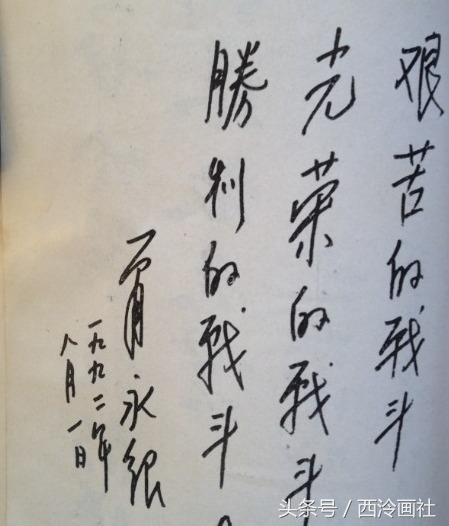 艰苦的战斗
光荣的战斗
勝利的战斗。
永
一九九二年
八月一日
头条号 / 西泠画社